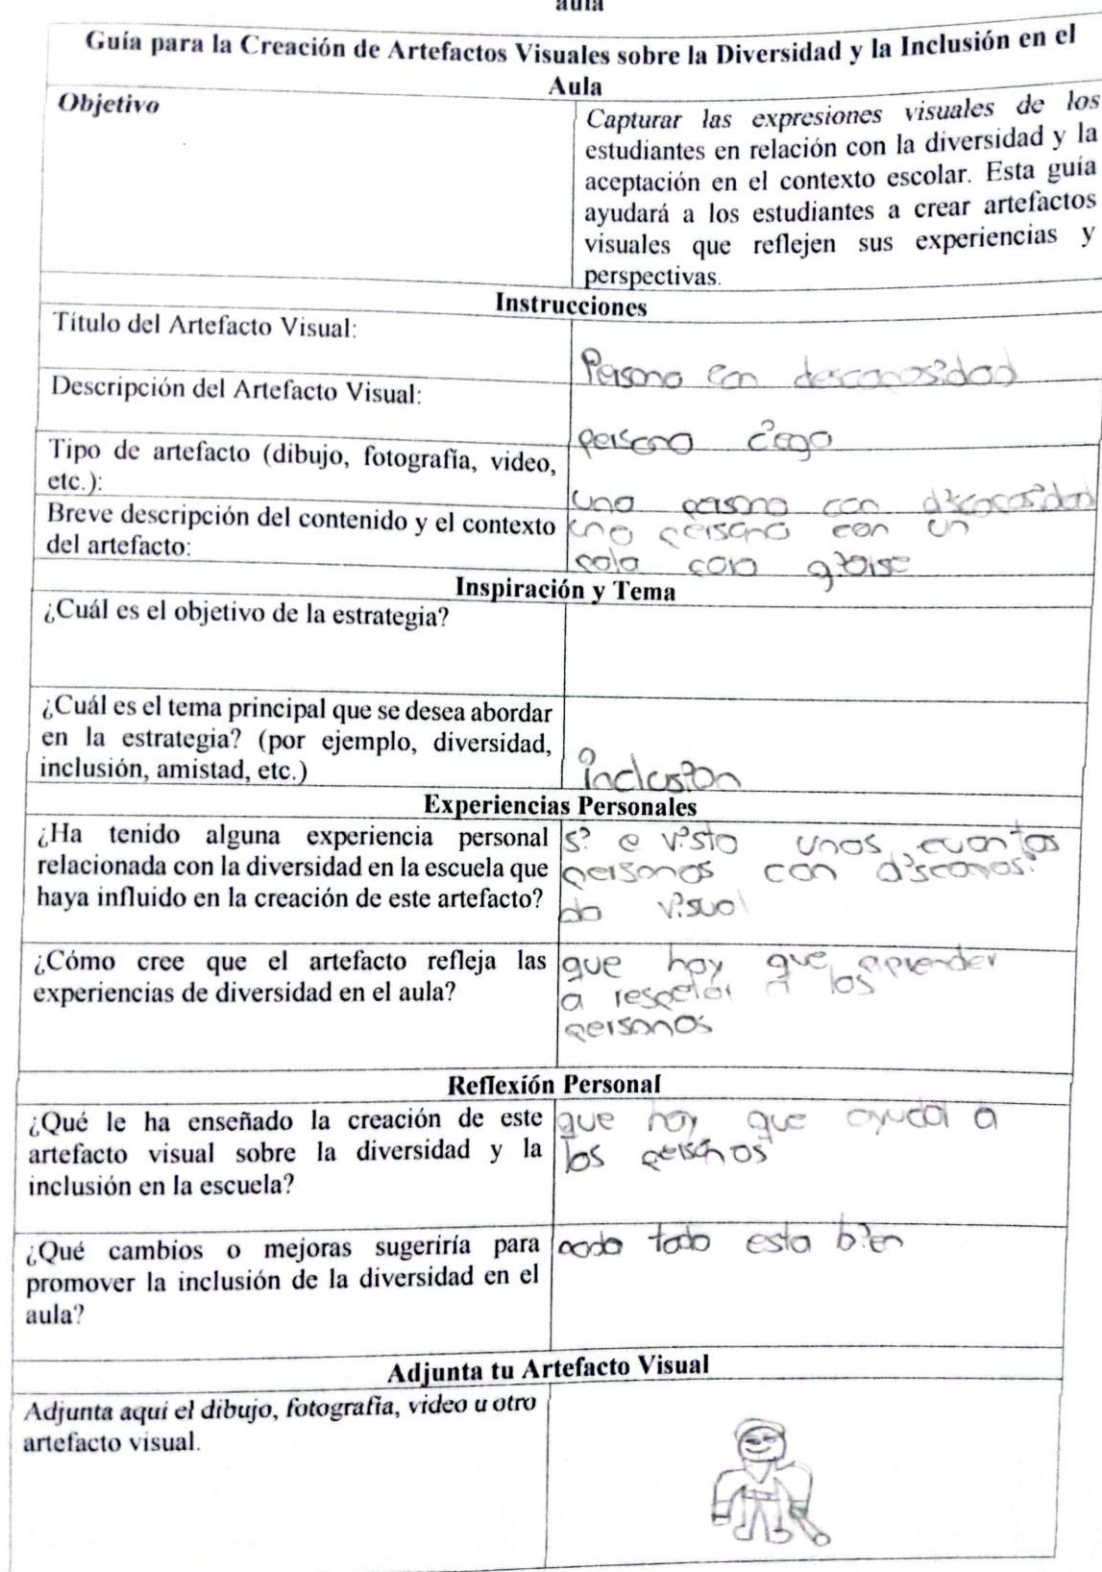 aula
Guía para la Creación de Artefactos Visuales sobre la Diversidad y la Inclusión en el
Aula
Objetivo
Capturar las expresiones visuales de los
estudiantes en relación con la diversidad y la
aceptación en el contexto escolar. Esta guía
ayudará a los estudiantes a crear artefactos
visuales que reflejen sus experiencias y
perspectivas.
Instrucciones
Título del Artefacto Visual:
Persona con
Descripción del Artefacto Visual:
persona ciega
Tipo de artefacto (dibujo, fotografía, video,
etc.):
una persona con
Breve descripción del contenido y el contexto
del artefacto:
una persona con un
palo para
Inspiración y Tema
¿Cuál es el objetivo de la estrategia?
¿Cuál es el tema principal que se desea abordar
en la estrategia? (por ejemplo, diversidad,
inclusión, amistad, etc.)
inclusion
Experiencias Personales
¿Ha tenido alguna experiencia personal
relacionada con la diversidad en la escuela que
haya influido en la creación de este artefacto?
si e visto unos cuantos
personas con
visual
¿Cómo cree que el artefacto refleja las
experiencias de diversidad en el aula?
que hay que aprender
a respetar a las
personas
Reflexión Personal
¿Qué le ha enseñado la creación de este
artefacto visual sobre la diversidad y la
inclusión en la escuela?
que hay que ayudar a
las personas
¿Qué cambios o mejoras sugeriría para
promover la inclusión de la diversidad en el
aula?
nada todo esta bien
Adjunta tu Artefacto Visual
Adjunta aquí el dibujo, fotografía, video u otro
artefacto visual.